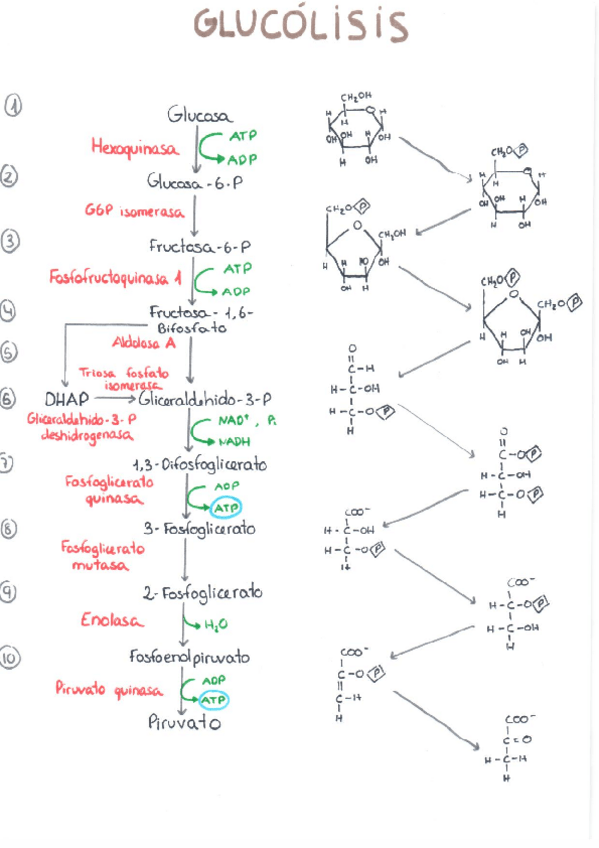 GLUCÓLISIS
1
Glucosa
Hexoquinasa
ATP
ADP
2
Glucosa-6-P
G6P isomerasa
3
Fructosa-6-P
Fosfofructoquinasa 1
ATP
ADP
4
Fructosa-1,6-
Bifosfato
5
Aldolasa A
Triosa fosfato
isomerasa
6
DHAP
Gliceraldehido-3-P
Gliceraldehido-3-P
deshidrogenasa
NAD⁺, Pi
NADH
7
1,3-Difosfoglicerato
Fosfoglicerato
quinasa
ADP
ATP
8
3-Fosfoglicerato
Fosfoglicerato
mutasa
9
2-Fosfoglicerato
Enolasa
H₂O
10
Fosfoenolpiruvato
Piruvato quinasa
ADP
ATP
Piruvato
CH₂OH
CH₂O P
CH₂O P
CH₂OH
CH₂O P
CH₂O P
C-H
H-C-OH
H-C-O P
H
C-O P
H-C-OH
H-C-O P
H
COO⁻
H-C-OH
H-C-O P
H
COO⁻
H-C-O P
H-C-OH
H
COO⁻
C-O P
C-H
H
COO⁻
C=O
H-C-H
H